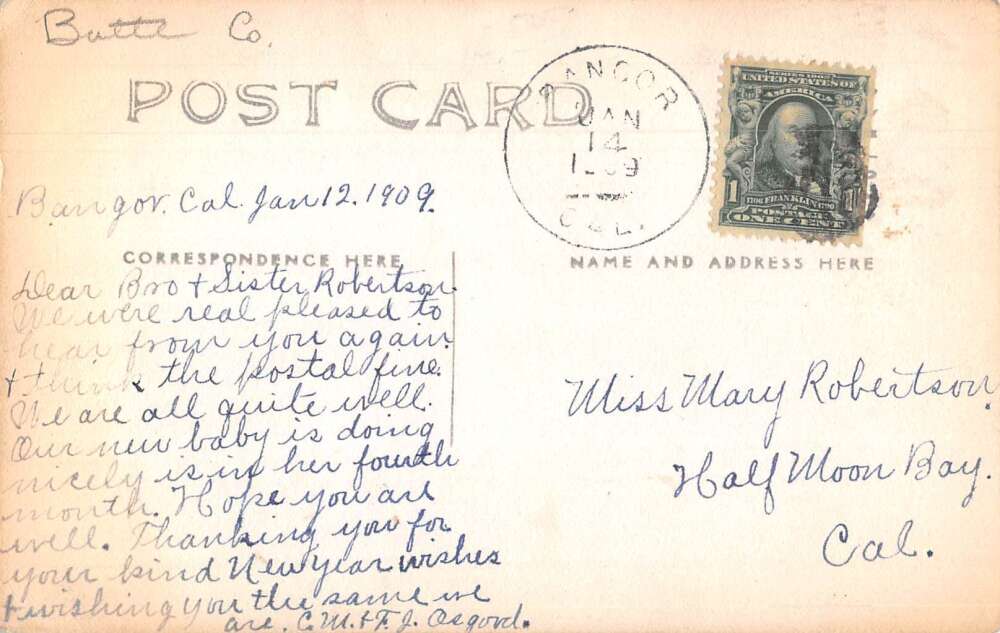 Butte Co.
POST CARD
BANGOR
JAN
14
1909
CAL.
SERIES 1902
UNITED STATES OF
AMERICA
1706 FRANKLIN 1790
1 POSTAGE 1
ONE CENT
Bangor. Cal. Jan 12. 1909.
CORRESPONDENCE HERE
NAME AND ADDRESS HERE
Dear Bro + Sister Robertson.
We were real pleased to
hear from you again
+ think the postal fine.
We are all quite well.
Our new baby is doing
nicely is in her fourth
month. Hope you are
well. Thanking you for
your kind New Year wishes
+ wishing you the same we
are. C. M. + F. J. Osgood.
Miss Mary Robertson.
Half Moon Bay.
Cal.